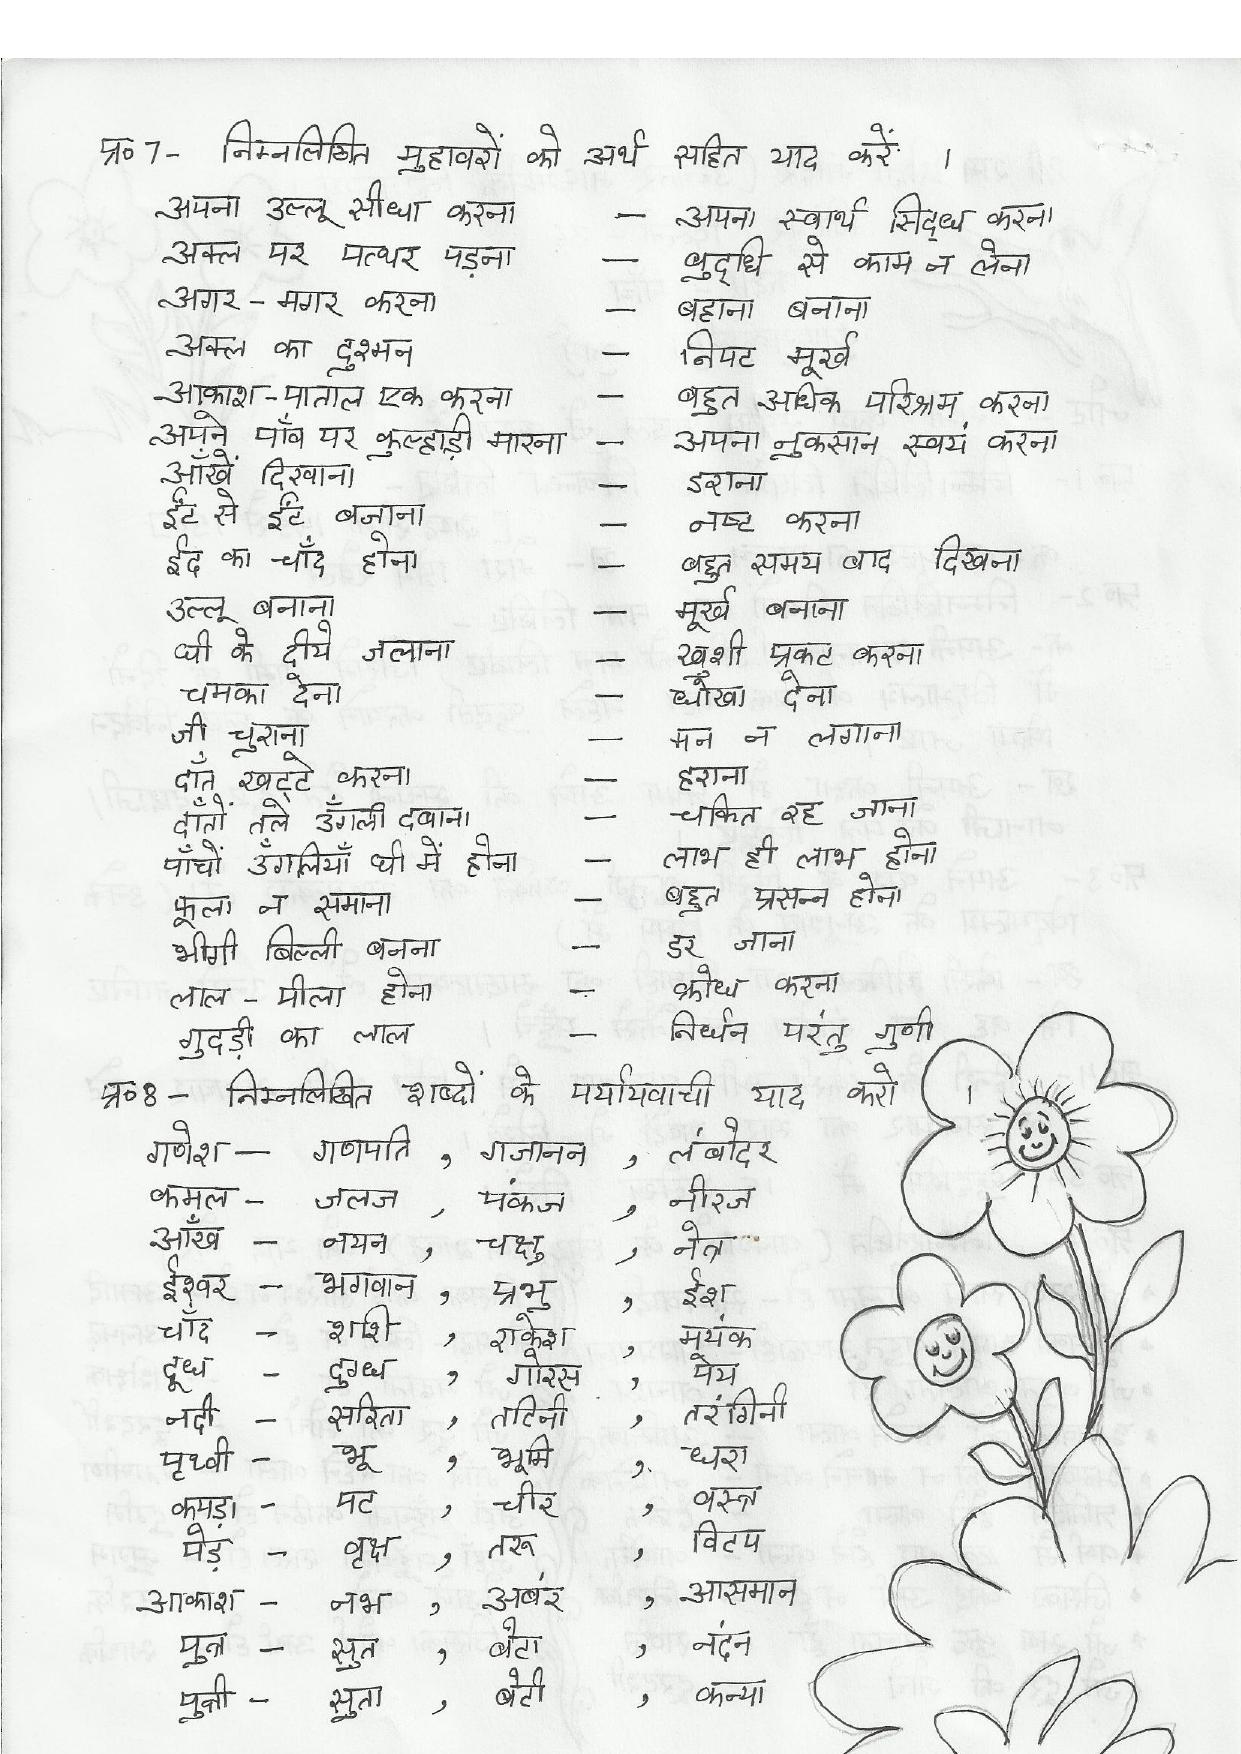 प्र०7- निम्नलिखित मुहावरों को अर्थ सहित याद करें ।
अपना उल्लू सीधा करना - अपना स्वार्थ सिद्ध करना
अक्ल पर पत्थर पड़ना - बुद्धि से काम न लेना
अगर-मगर करना - बहाना बनाना
अक्ल का दुश्मन - निपट मूर्ख
आकाश-पाताल एक करना - बहुत अधिक परिश्रम करना
अपने पाँव पर कुल्हाड़ी मारना - अपना नुकसान स्वयं करना
आँखें दिखाना - डराना
ईंट से ईंट बजाना - नष्ट करना
ईद का चाँद होना - बहुत समय बाद दिखना
उल्लू बनाना - मूर्ख बनाना
घी के दीये जलाना - खुशी प्रकट करना
चमका देना - धोखा देना
जी चुराना - मन न लगाना
दाँत खट्टे करना - हराना
दाँतों तले उँगली दबाना - चकित रह जाना
पाँचों उँगलियाँ घी में होना - लाभ ही लाभ होना
फूला न समाना - बहुत प्रसन्न होना
भीगी बिल्ली बनना - डर जाना
लाल-पीला होना - क्रोध करना
गुदड़ी का लाल - निर्धन परंतु गुणी
प्र०8- निम्नलिखित शब्दों के पर्यायवाची याद करो ।
गणेश - गणपति , गजानन , लंबोदर
कमल - जलज , पंकज , नीरज
आँख - नयन , चक्षु , नेत्र
ईश्वर - भगवान , प्रभु , ईश
चाँद - शशि , राकेश , मयंक
दूध - दुग्ध , गोरस , पेय
नदी - सरिता , तटिनी , तरंगिनी
पृथ्वी - भू , भूमि , धरा
कपड़ा - पट , चीर , वस्त्र
पेड़ - वृक्ष , तरू , विटप
आकाश - नभ , अबंर , आसमान
पुत्र - सुत , बेटा , नंदन
पुत्री - सुता , बेटी , कन्या